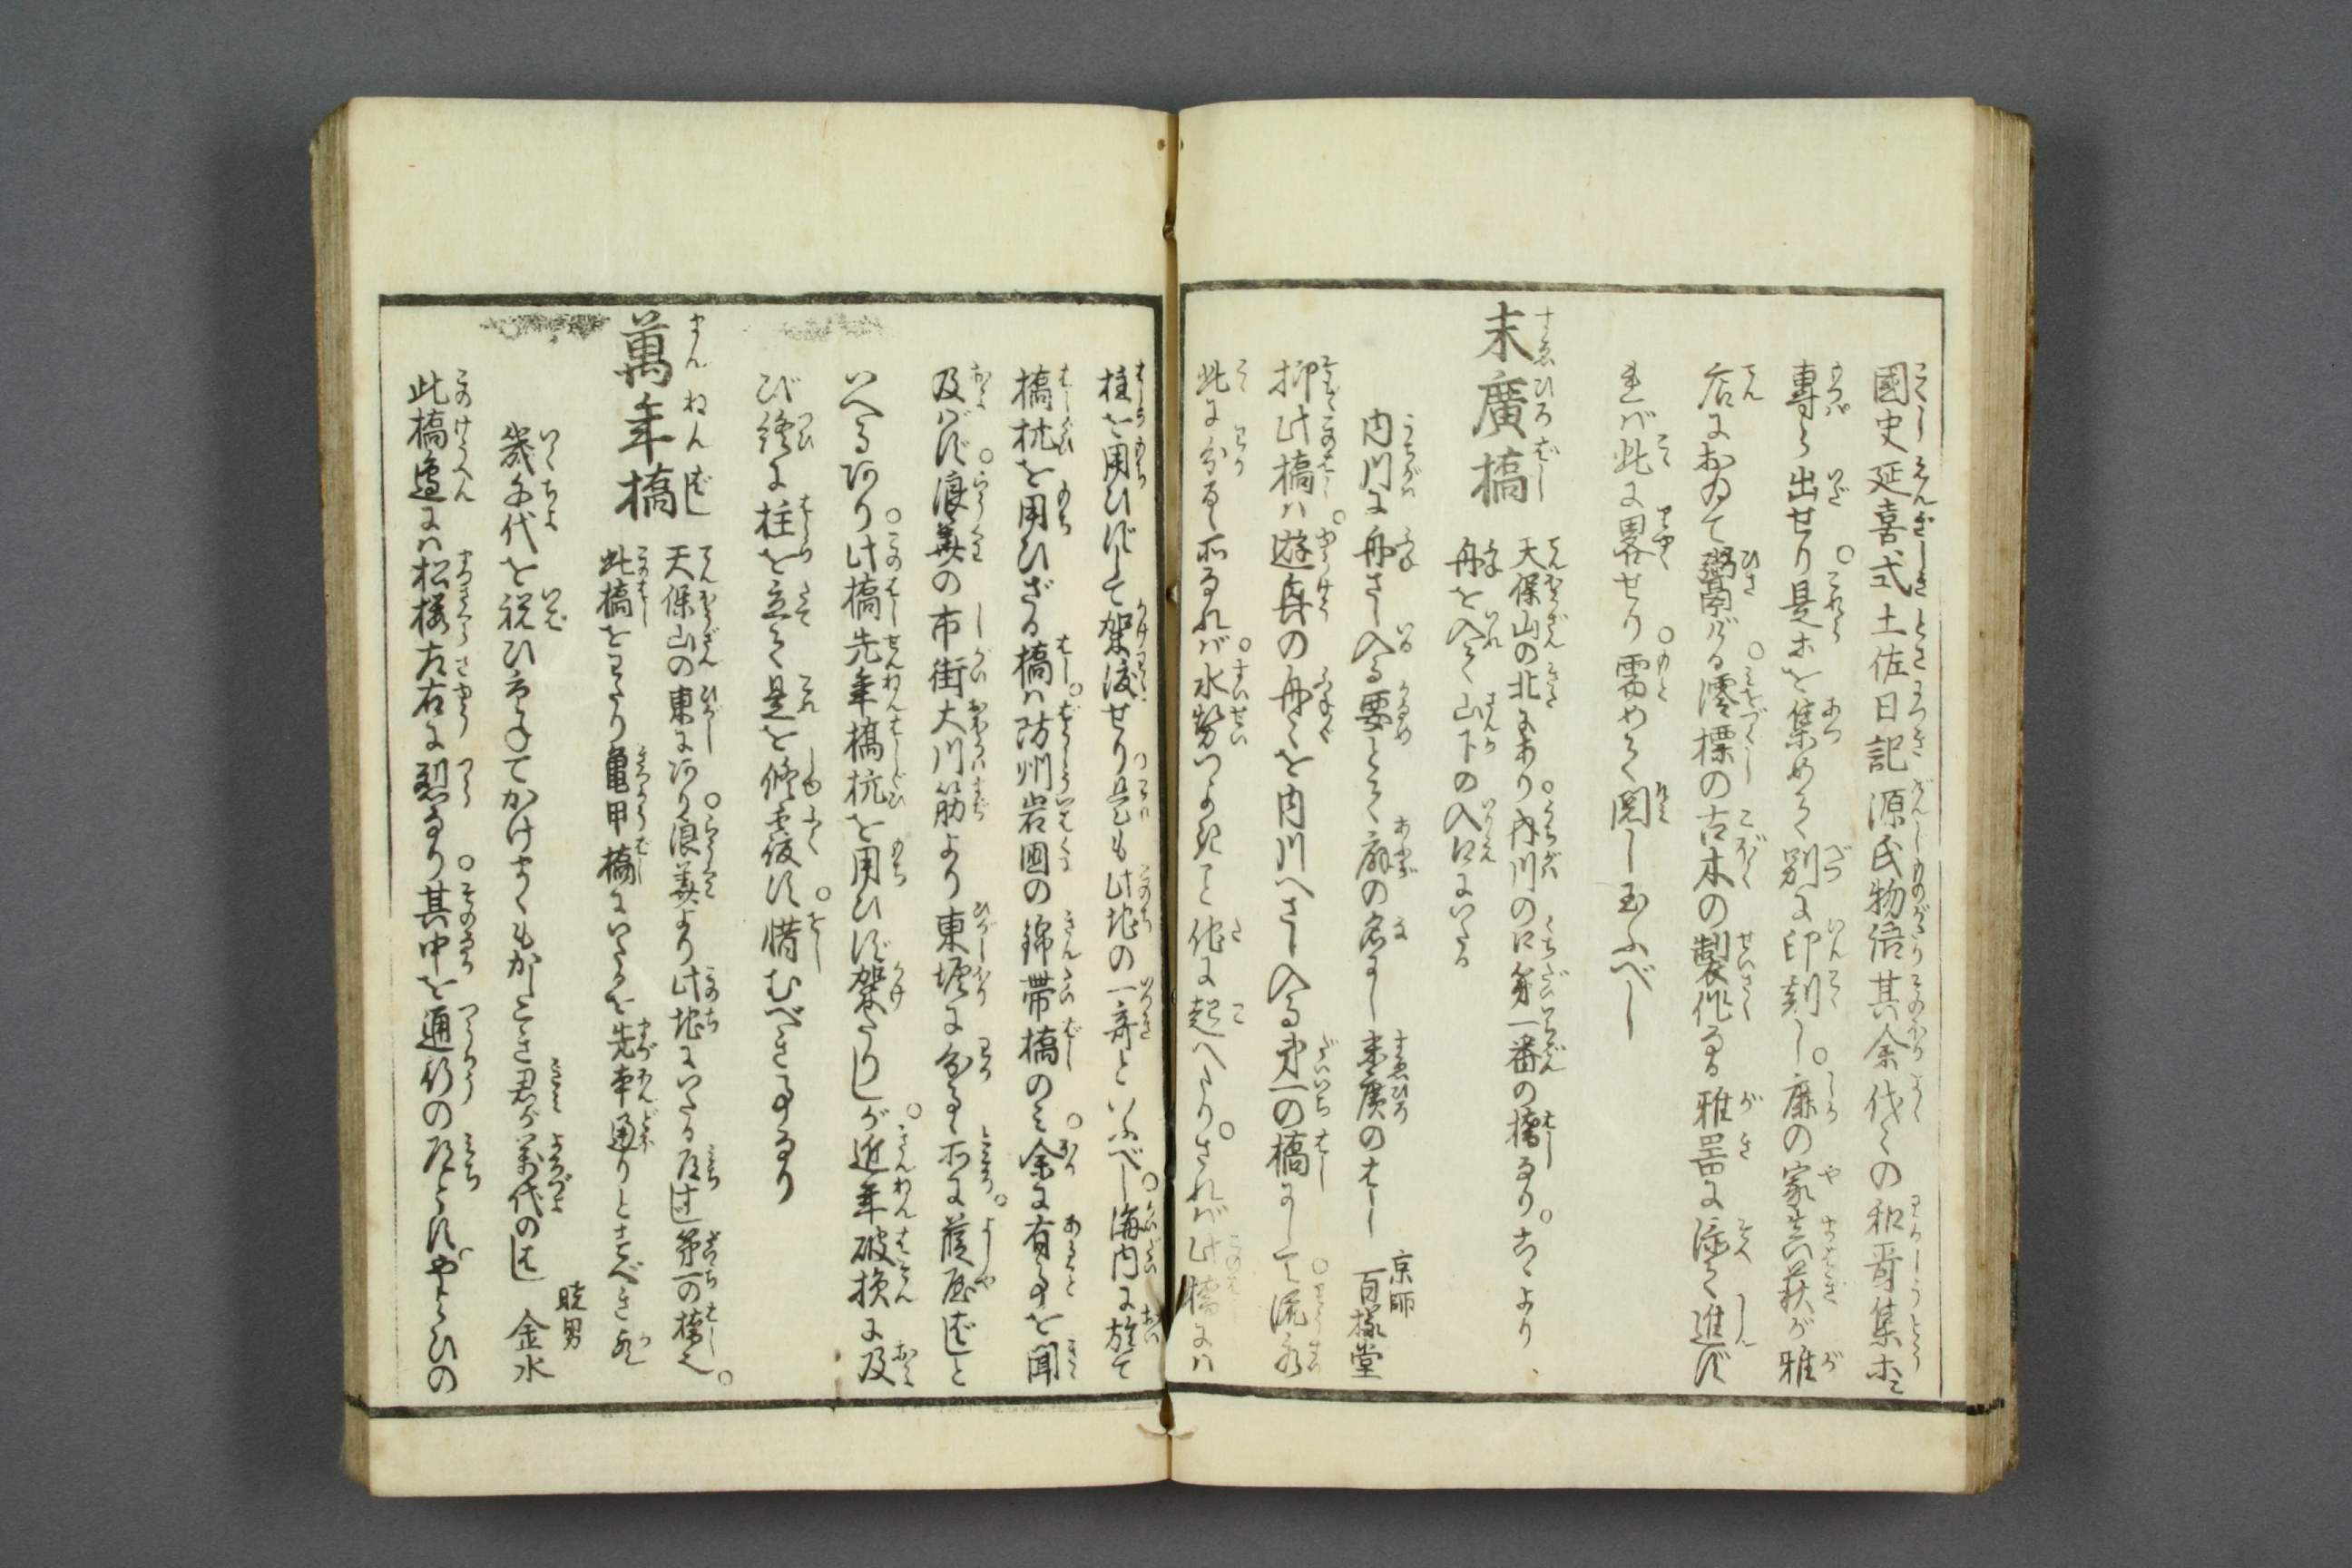 國史延喜式土佐日記源氏物語其余代々の和哥集等に
専ら出せり是等を集めて別に印刻し廉の家芦荻が雅
店におゐて鬻げる澪標の古木の製作なる雅器に添て進ず
れば此に畧せり需めて閲し玉ふべし
末廣橋
天保山の北にあり内川の口第一番の橋なり こゝより
舟を入て山下の入江にいたる
内川に舟さし入る要とて扇の名にし末廣のはし
京師
百樣堂
抑此橋ハ遊興の舟々を内川へさし入る第一の橋にして流水
此に分るゝ所なれバ水勢つよきこと他に超へたりされバ此橋にハ
柱を用ひずして架渡せり是も此地の一奇といふべし海内に於て
橋杭を用ひざる橋ハ防州岩国の錦帯橋のミ余に有事を聞
及バず浪華の市街大川筋より東堀に分る所に葭屋ばしと
いへるあり此橋先年橋杭を用ひず架たりしが近年破損に及
び終に柱を立て是を修復す惜むべき事なり
萬年橋
天保山の東にあり浪華より此地にいたる道辻第一の橋也
此橋をわたり亀甲橋にいたるを先本通りとすべき歟
幾千代を祝ひ家
てかけまくもかしこき君が萬代のはし
暁男
金水
此橋邊にハ松桜左右に列なり其中を通行の道とすやよひの